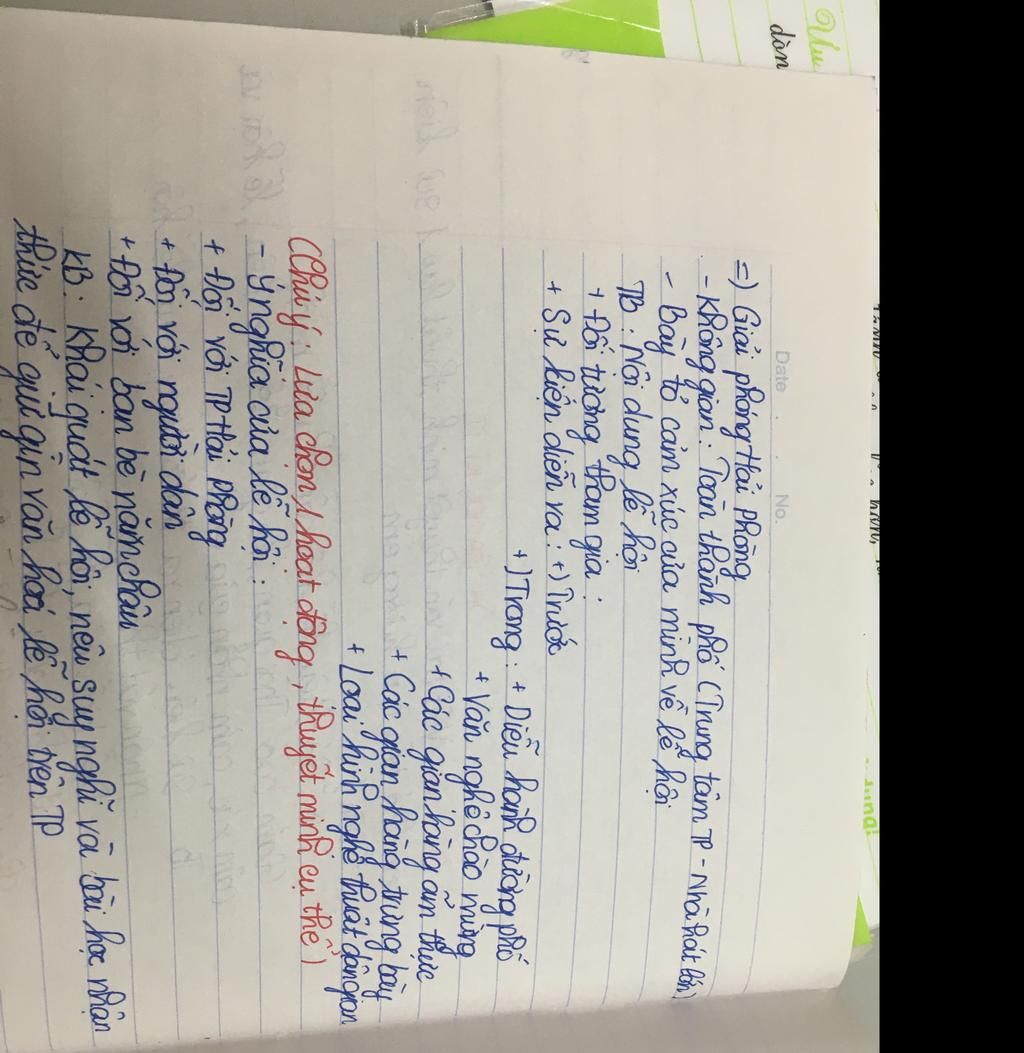 Ưu
dòn
Date
No.
=) Giải phóng Hải Phòng
- Không gian: Toàn thành phố (Trung tâm TP - Nhà hát lớn)
- Bày tỏ cảm xúc của mình về lễ hội
TB: Nội dung lễ hội
+ Đối tượng tham gia:
+ Sự kiện diễn ra: +) Trước
+) Trong: + Diễu hành đường phố
+ Văn nghệ chào mừng
+ Các gian hàng ẩm thực
+ Các gian hàng trưng bày
+ Loại hình nghệ thuật dân gian
(Chú ý: Lựa chọn 1 hoạt động, thuyết minh cụ thể)
- Ý nghĩa của lễ hội:
+ Đối với TP Hải Phòng
+ Đối với người dân
+ Đối với bạn bè năm châu
KB: Khái quát lễ hội, nêu suy nghĩ và bài học nhận
thức để giữ gìn văn hoá lễ hội trên TP